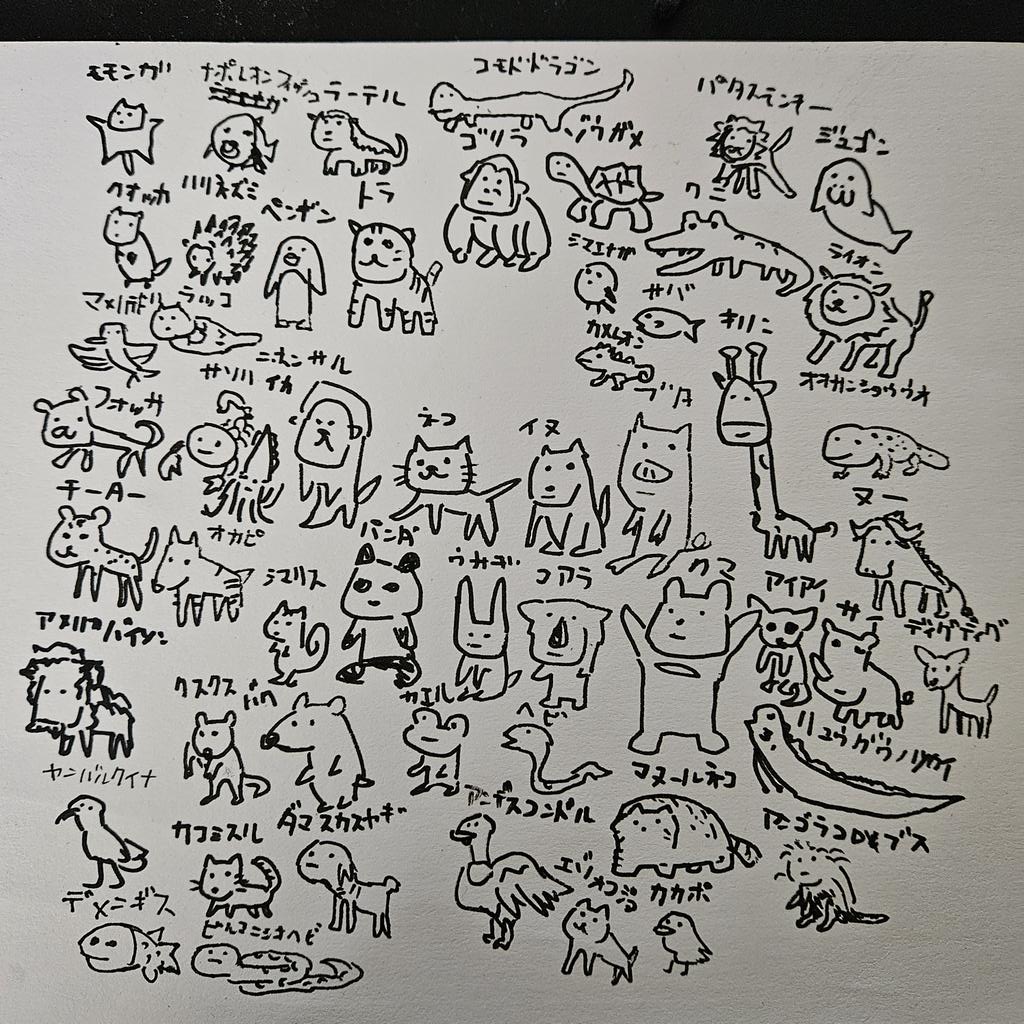 モモンガ
ナポレオンフィッシュ
ラーテル
コモドドラゴン
パタスモンキー
ゴリラ
ゾウガメ
ジュゴン
クオッカ
ハリネズミ
ペンギン
トラ
ワニ
シマエナガ
ライオン
ラッコ
サバ
カメレオン
キリン
ニホンザル
フォッサ
ネコ
イヌ
ブタ
オオサンショウウオ
チーター
オカピ
ヌー
シマリス
パンダ
ウサギ
コアラ
クマ
アイアイ
サイ
ディグディグ
アメリカバイソン
クスクス
バク
カエル
ヘビ
リュウグウノツカイ
ヤンバルクイナ
マヌールネコ
カコミスル
ダマスカスヤギ
アンデスコンドル
アンゴラコロブス
デメニギス
エゾオコジョ
カカポ